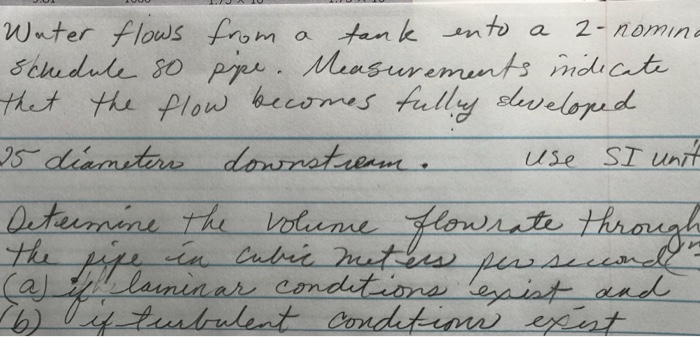 Water flows from a tank into a 2-nomina
schedule 80 pipe. Measurements indicate
that the flow becomes fully developed
25 diameters downstream. Use SI unit
Determine the volume flowrate through
the pipe in cubic meters per second
(a) if laminar conditions exist and
(b) if turbulent conditions exist